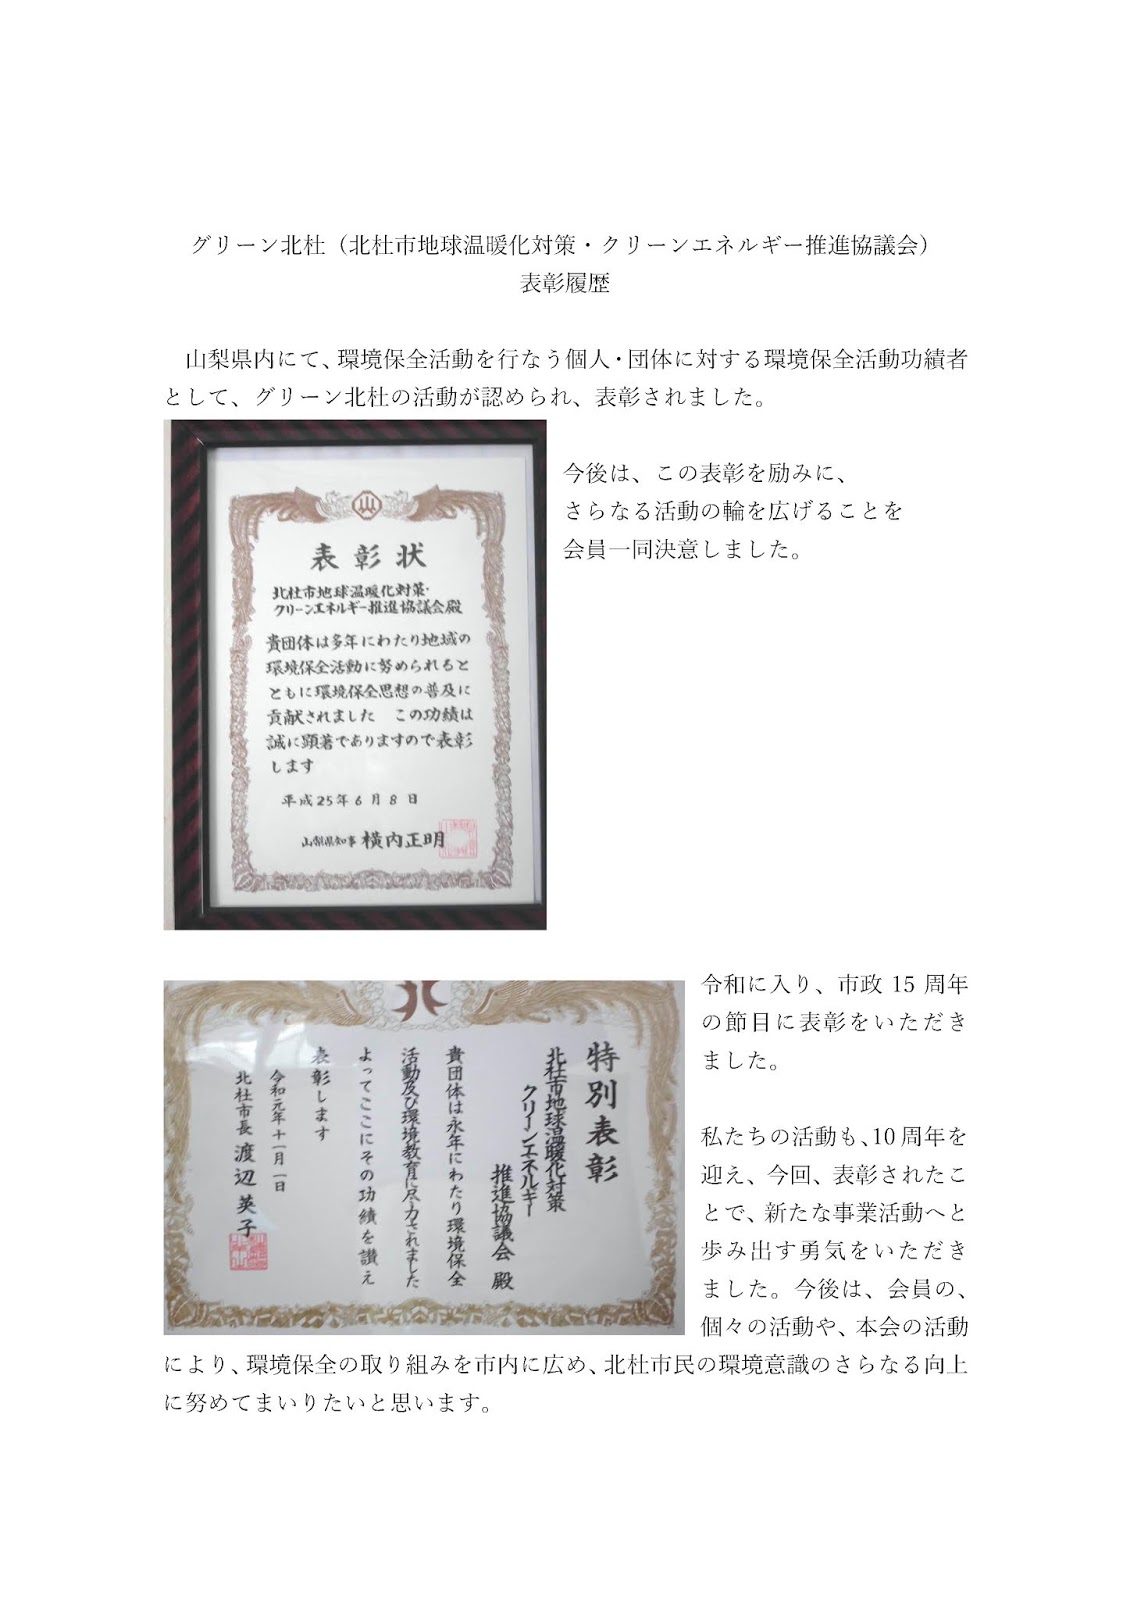 グリーン北杜（北杜市地球温暖化対策・クリーンエネルギー推進協議会）
表彰履歴
山梨県内にて、環境保全活動を行なう個人・団体に対する環境保全活動功績者
として、グリーン北杜の活動が認められ、表彰されました。
今後は、この表彰を励みに、
さらなる活動の輪を広げることを
会員一同決意しました。
表彰状
北杜市地球温暖化対策・
クリーンエネルギー推進協議会殿
貴団体は多年にわたり地域の
環境保全活動に努められると
ともに環境保全思想の普及に
貢献されました　この功績は
誠に顕著でありますので表彰
します
平成25年6月8日
山梨県知事 横内正明
令和に入り、市政 15 周年
の節目に表彰をいただき
ました。
私たちの活動も、10 周年を
迎え、今回、表彰されたこ
とで、新たな事業活動へと
歩み出す勇気をいただき
ました。今後は、会員の、
個々の活動や、本会の活動
により、環境保全の取り組みを市内に広め、北杜市民の環境意識のさらなる向上
に努めてまいりたいと思います。
特別表彰
北杜市地球温暖化対策
クリーンエネルギー
推進協議会 殿
貴団体は永年にわたり環境保全
活動及び環境教育に尽力されました
よってここにその功績を讃え
表彰します
令和元年十一月一日
北杜市長 渡辺英子